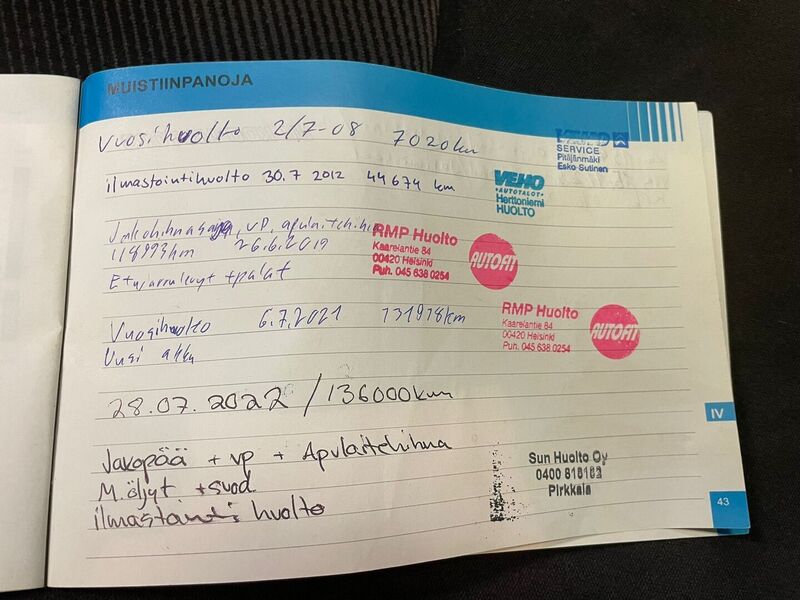 MUISTIINPANOJA
Vuosihuolto 2/7-08 7020 km
VEHO
SERVICE
Pitäjänmäki
Esko Sutinen
ilmastointihuolto 30.7 2012 44674 km
VEHO
AUTOTALOT
Herttoniemi
HUOLTO
Jakohihnasarja, VP, apulaitehihna
118993km 26.6.2019
RMP Huolto
Kaarelantie 84
00420 Helsinki
Puh. 045 638 0254
AUTOFIT
Etujarrulevyt + palat
Vuosihuolto 6.7.2021 131918km
Uusi akku
RMP Huolto
Kaarelantie 84
00420 Helsinki
Puh. 045 638 0254
AUTOFIT
28.07.2022 / 136000km
IV
Jakopää + vp + Apulaitehihna
M. öljyt + suod.
ilmastointi huolto
Sun Huolto Oy
0400
Pirkkala
43